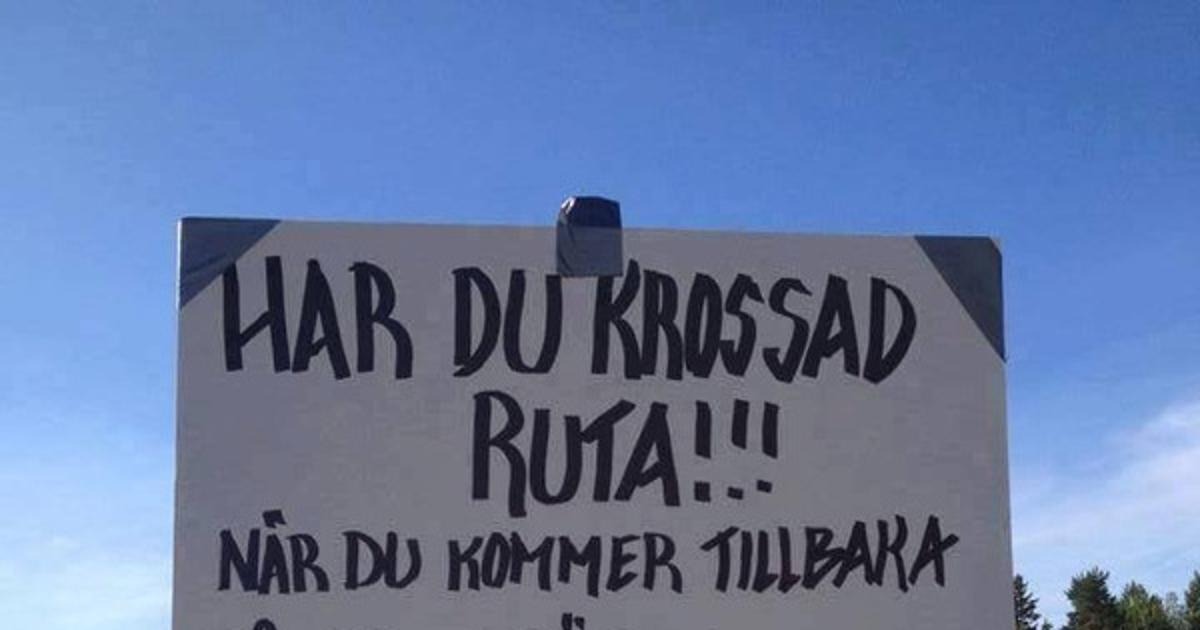 HAR DU KROSSAD
RUTA!!!
NÄR DU KOMMER TILLBAKA